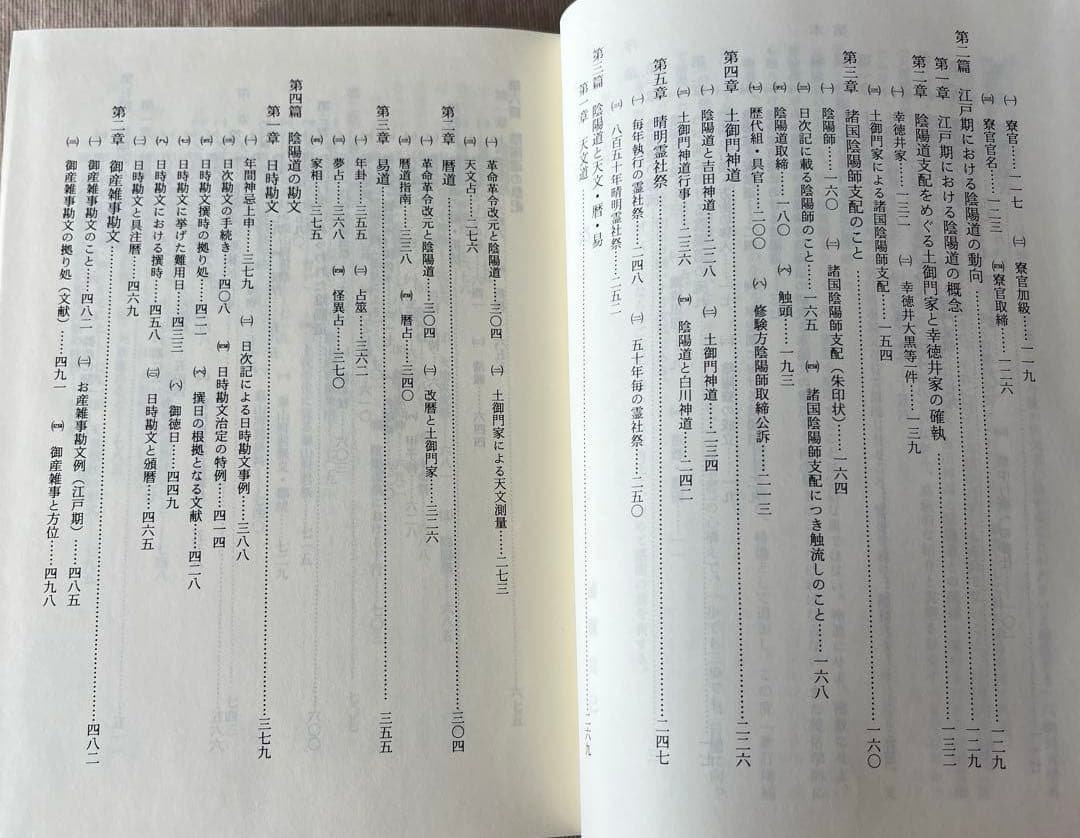 ㈠ 寮官……一一七 ㈡ 寮官加級……一一九
㈢ 寮官官名……一二三 ㈣ 寮官取締……一二六
第二篇 江戸期における陰陽道の動向……一二九
第一章 江戸期における陰陽道の概念……一二九
第二章 陰陽道支配をめぐる土御門家と幸徳井家の確執……一三二
㈠ 幸徳井家……一三二 ㈡ 幸徳井大黒等一件……一三九
㈢ 土御門家による諸国陰陽師支配……一五四
第三章 諸国陰陽師支配のこと……一六〇
㈠ 陰陽師……一六〇 ㈡ 諸国陰陽師支配（朱印状）……一六四
㈢ 日次記に載る陰陽師のこと……一六五 ㈣ 諸国陰陽師支配につき触流しのこと……一六八
㈤ 陰陽道取締……一八〇 ㈥ 触頭……一九三
㈦ 歴代組・具官……二〇〇 ㈧ 修験方陰陽師取締公訴……二一三
第四章 土御門神道……二二六
㈠ 陰陽道と吉田神道……二二八 ㈡ 土御門神道……二三四
㈢ 土御門神道行事……二三六 ㈣ 陰陽道と白川神道……二四二
第五章 晴明霊社祭……二四七
㈠ 毎年執行の霊社祭……二四八 ㈡ 五十年毎の霊社祭……二五〇
㈢ 八百五十年晴明霊社祭……二五二
第三篇 陰陽道と天文・暦・易
第一章 天文道……二六九
㈠ 革命革令改元と陰陽道……三〇四 ㈡ 土御門家による天文測量……二七三
㈢ 天文占……二七六
第二章 暦道……三〇四
㈠ 革命革令改元と陰陽道……三〇四 ㈡ 改暦と土御門家……三二六
㈢ 暦道指南……三三八 ㈣ 暦占……三四〇
第三章 易道……三五五
㈠ 年卦……三五五 ㈡ 占筮……三六二
㈢ 夢占……三六八 ㈣ 怪異占……三七〇
㈤ 家相……三七五
第四篇 陰陽道の勘文
第一章 日時勘文……三七九
㈠ 年間神忌上申……三七九 ㈡ 日次記による日時勘文事例……三八八
㈢ 日次勘文の手続き……四〇八 ㈣ 日時勘文治定の特例……四一四
㈤ 日時勘文撰時の拠り処……四二一 ㈥ 撰日の根拠となる文献……四二八
㈦ 日時勘文に挙げた難用日……四三三 ㈧ 御徳日……四四九
㈠ 日時勘文における撰時……四五八 ㈡ 日時勘文と頒暦……四六五
㈠ 日時勘文と具注暦……四六九
第二章 御産雑事勘文……四八二
㈠ 御産雑事勘文のこと……四八二 ㈡ お産雑事勘文例（江戸期）……四八五
㈢ 御産雑事勘文の拠り処（文献）……四九一 ㈣ 御産雑事と方位……四九八